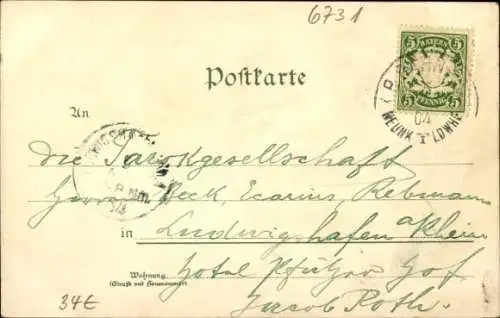 6731
5 BAYERN 5
5 PFENNIG 5
04
Postkarte
An
die Tarokgesellschaft
Beck, Ecarius, Rebmann
in Ludwigshafen a Rhein
Hotel Pfälzer Hof
Wohnung
(Straße und Hausnummer)
Jacob Roth.
34€